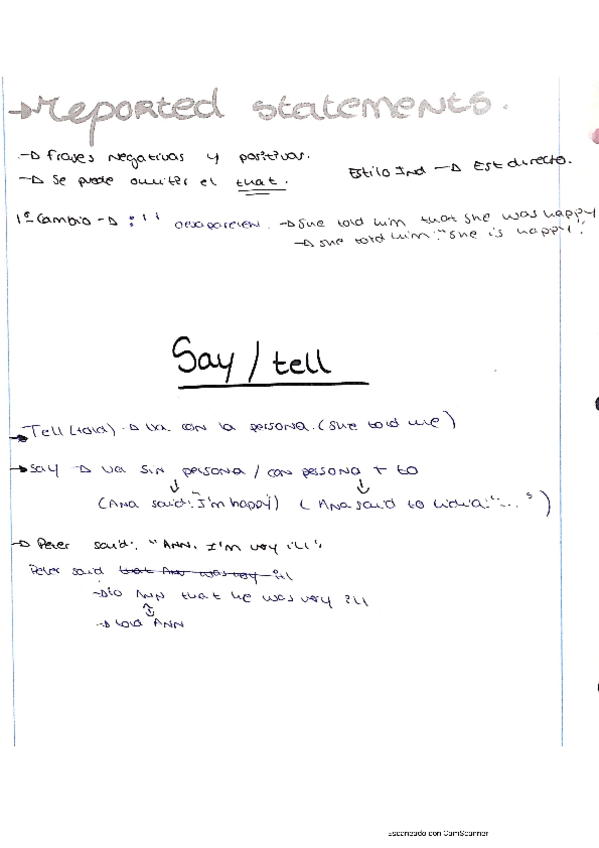 → Reported statements.
→ Frases negativas y positivas.
Estilo Ind → Est directo.
→ Se puede omitir el that.
1º Cambio → : " desaparecen. → She told him that she was happy
→ she told him: "she is happy".
Say / tell
→ Tell (told) → va con la persona. (she told me)
→ say → va sin persona / con persona + to
(Ana said: "I'm happy) (Ana said to Lidia: "... ")
→ Peter said: "Ann, I'm very ill".
Peter said that Ann was very ill
→ to Ann that he was very ill
→ told Ann
Escaneado con CamScanner